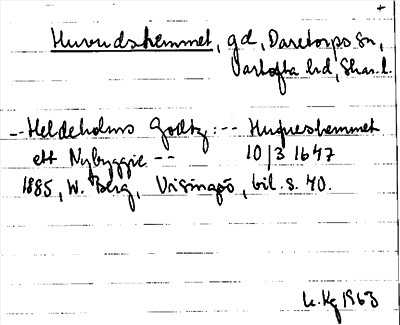 +
Huvudshemmet, gd, Daretorps sn,
Vartofta hd, Skar. l.
-- Heldeholms Godtz: -- Hugueshemmet
ett Nybyggie -- 10/3 1647
1885, W. Berg, Visingsö, bil. s. 40.
1963